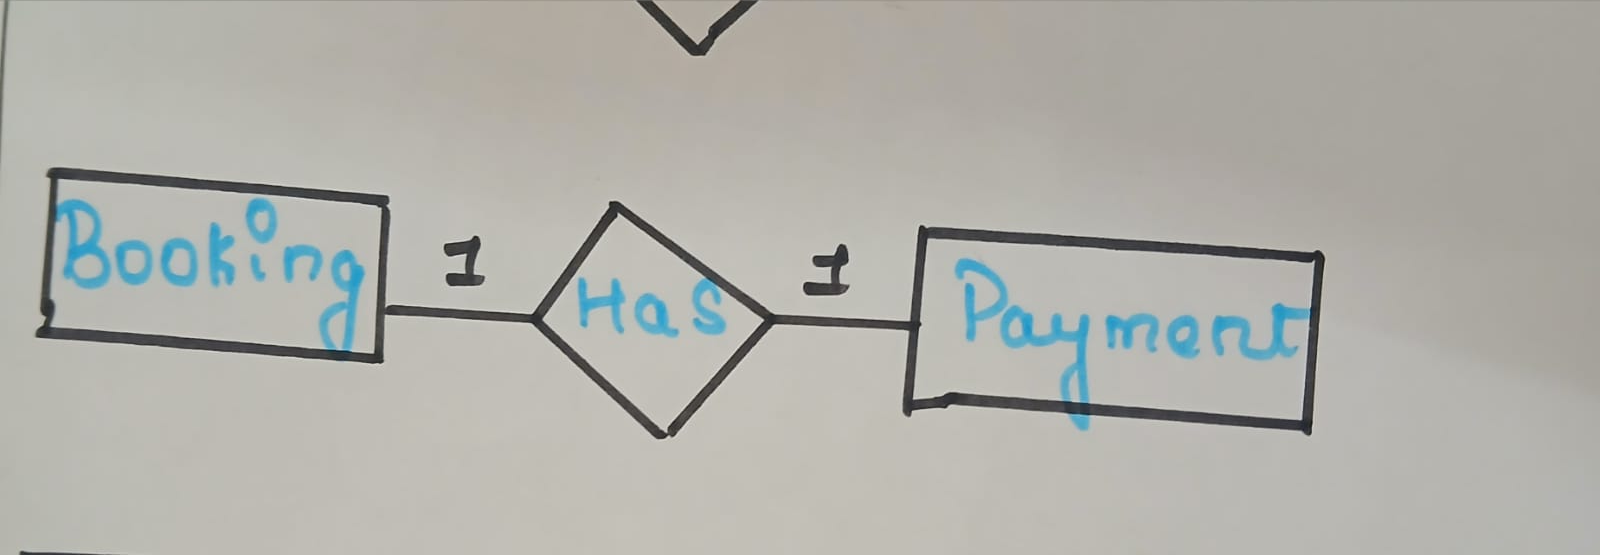 Booking
1
Has
1
Payment